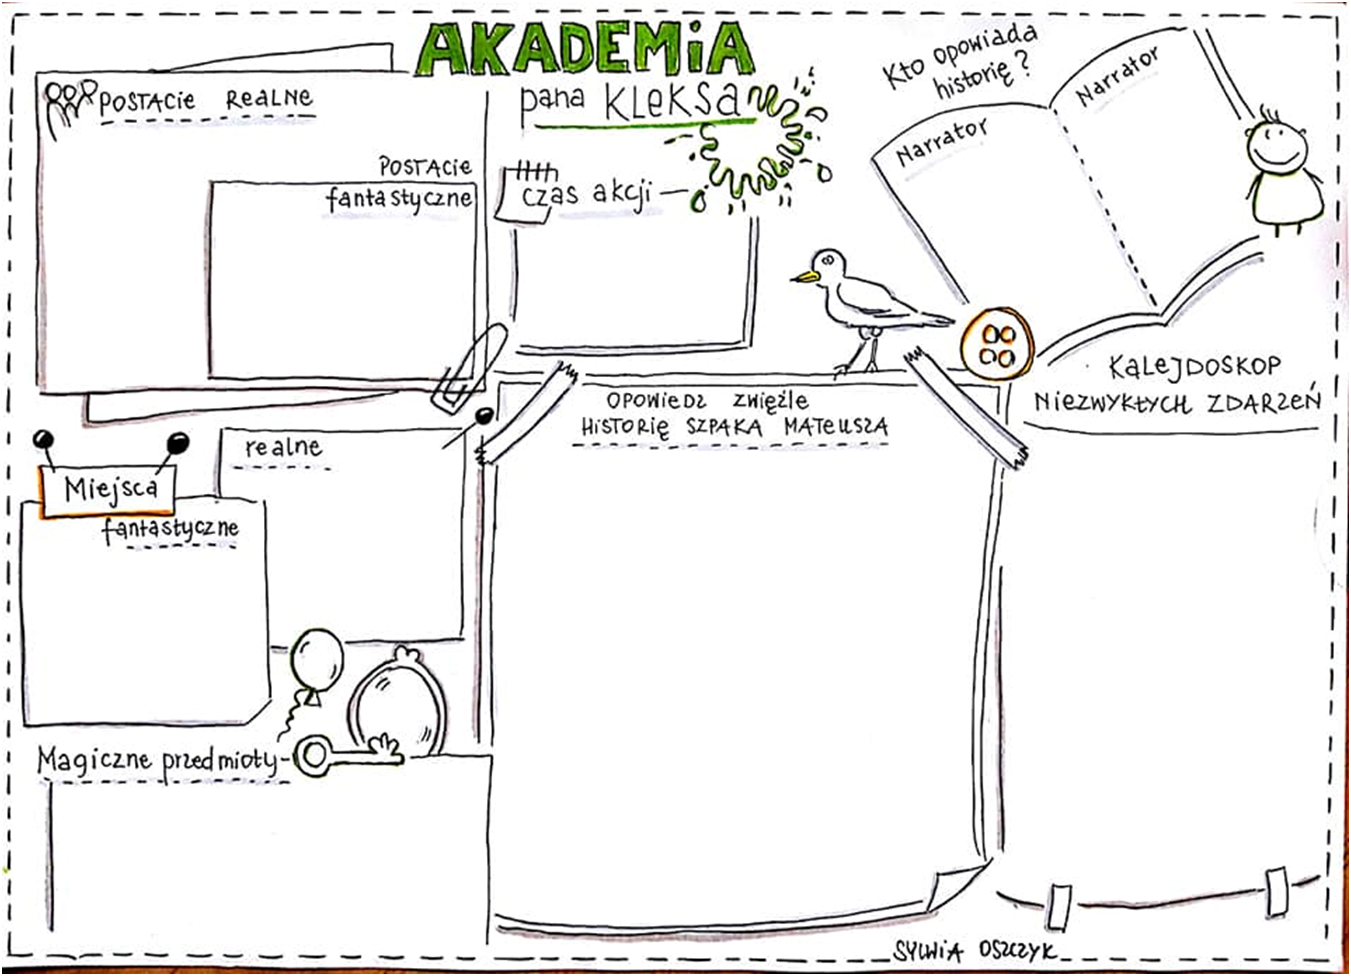 AKADEMiA
pana KLEKSA
POSTACIE REALNE
POSTACIE
fantastyczne
czas akcji
Kto opowiada
historię?
Narrator
Narrator
KALEJDOSKOP
NIEZWYKŁYCH ZDARZEŃ
OPOWIEDZ ZWIĘŹLE
HISTORIĘ SZPAKA MATEUSZA
realne
Miejsca
fantastyczne
Magiczne przedmioty
SYLWiA OSZCZYK